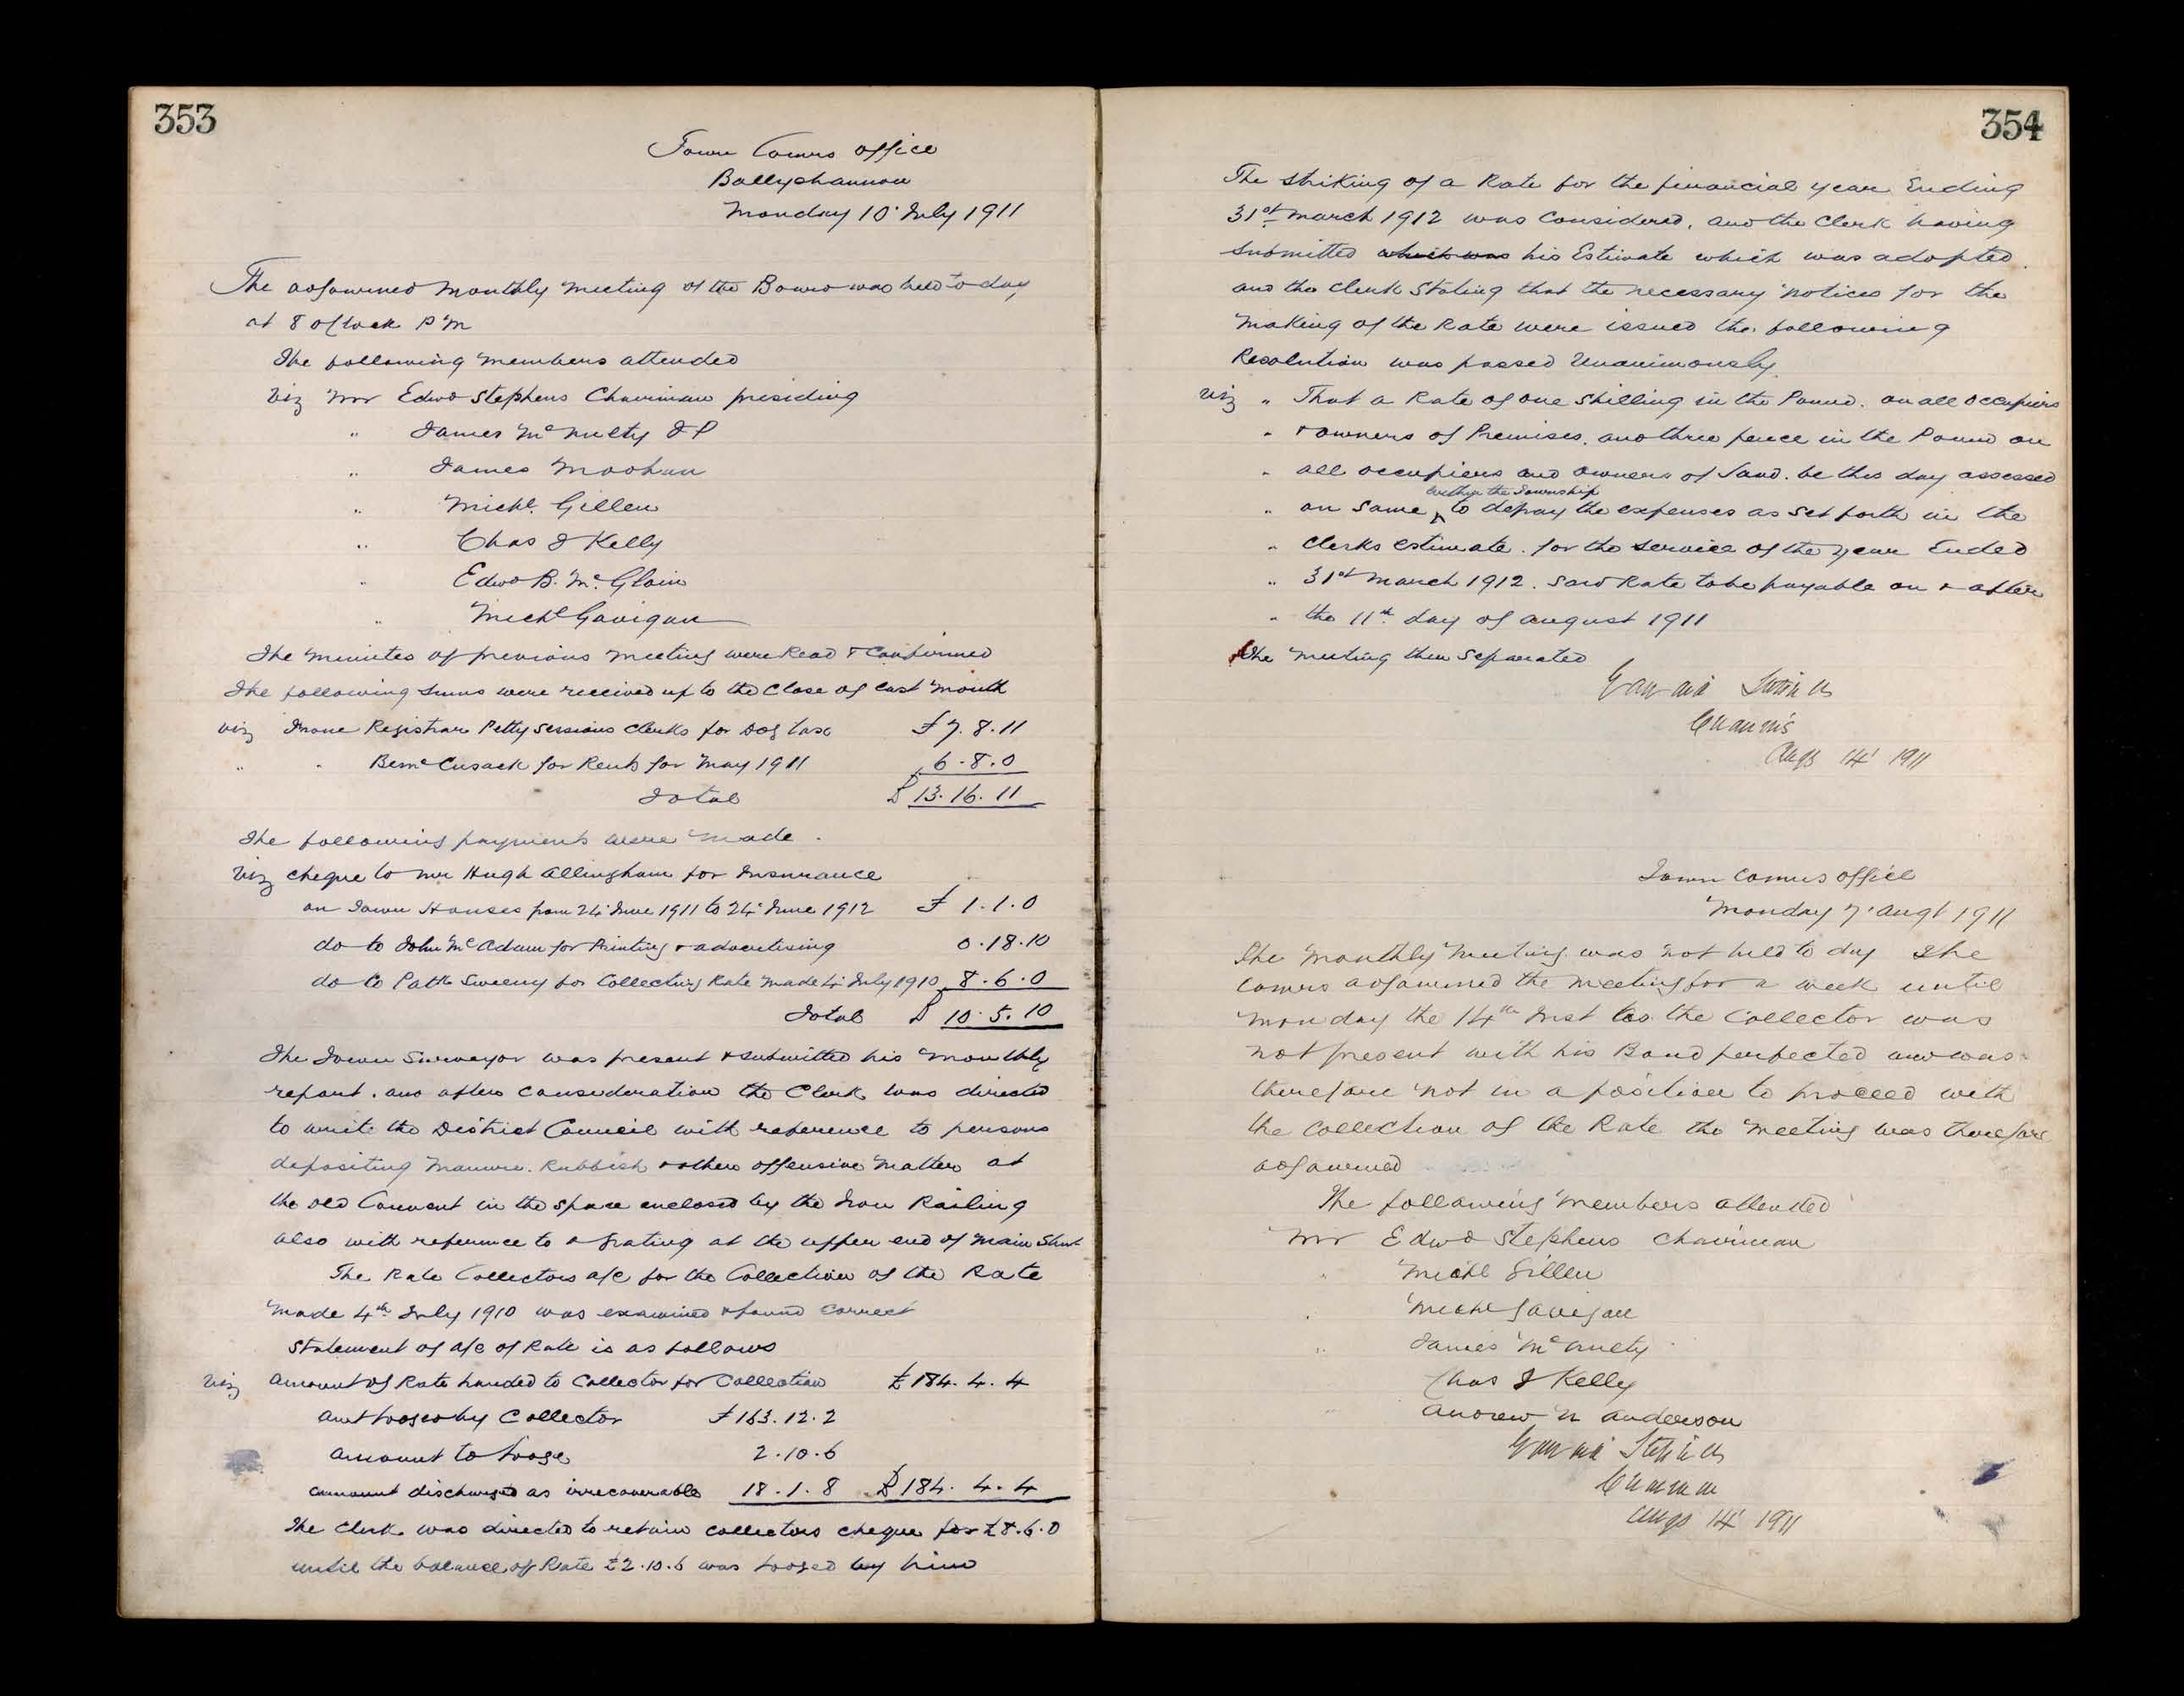 353
Town Comrs Office
Ballyshannon
Monday 10' July 1911
The adjourned Monthly Meeting of the Board was held to day
at 8 oClock P.M
The following Members attended
Viz Mr Edwd Stephens Chairman presiding
" James McNulty J P
" James Moohan
" Michl. Gillen
" Chas J Kelly
" Edwd B. Mc.Gloin
" Michl Gavigan
The Minutes of previous Meeting were Read & Confirmed
The following Sums were received up to the Close of last Month
viz From Registrar Petty Sessions Clerks for Dog tax £7.8.11
" " Cusack for Rents for May 1911 6.8.0
Total £ 13.16.11
The following payments were Made.
Viz cheque to Mr Hugh Allingham for Insurance
on Town Houses from 24' June 1911 to 24' June 1912 £ 1.1.0
do to John McAdam for Printing & advertising 0.18.10
do to Patk Sweeny for Collecting Rate Made 4' July 1910 8.6.0
Total £ 10.5.10
The Town Surveyor was present & submitted his Monthly
report. and after consideration the Clerk was directed
to write the District Council with reference to persons
depositing Manure. Rubbish & other offensive Matter at
the old Convent in the space enclosed by the Iron Railing
also with reference to a grating at the upper end of Main Street
The Rate Collectors a/c for the Collection of the Rate
Made 4th July 1910 was examined & found Correct
Statement of a/c of Rate is as follows
Viz Amount of Rate handed to Collector for Collection £184.4.4
Amt lodged by Collector £163.12.2
Amount to Lodge 2.10.6
amount discharged as irrecoverable 18.1.8 £184.4.4
The Clerk was directed to retain Collectors cheque for £8.6.0
until the balance of Rate £2.10.6 was Lodged by him
354
The Striking of a Rate for the financial year Ending
31st March 1912 was Considered. and the Clerk having
Submitted which was his Estimate which was adopted.
and the Clerk Stating that the necessary notices for the
Making of the Rate were issued the following
Resolution was passed Unanimously.
Viz " That a Rate of One Shilling in the Pound. on all Occupiers
" & owners of Premises. and three pence in the Pound on
" all occupiers and owners of Land. be this day assessed
within the Township
" on Same to defray the expenses as Set forth in the
" Clerks estimate. for the Service of the year Ended
" 31st March 1912. Said Rate to be payable on & after
" the 11th day of August 1911
The Meeting then Separated
Edward Stephens
Chairman
Augt 14' 1911
Town Comrs Office
Monday 7' Augt 1911
The Monthly Meeting was not held to day The
Comrs adjourned the Meeting for a week until
Monday the 14th Inst as the Collector was
not present with his Bond perfected and was
therefore not in a position to proceed with
the Collection of the Rate the Meeting was therefore
adjourned
The following Members attended
Mr Edwd Stephens Chairman
" Michl Gillen
" Michl Gavigan
" James McNulty
Chas J Kelly
Andrew N Anderson
Edward Stephens
Chairman
Augt 14' 1911